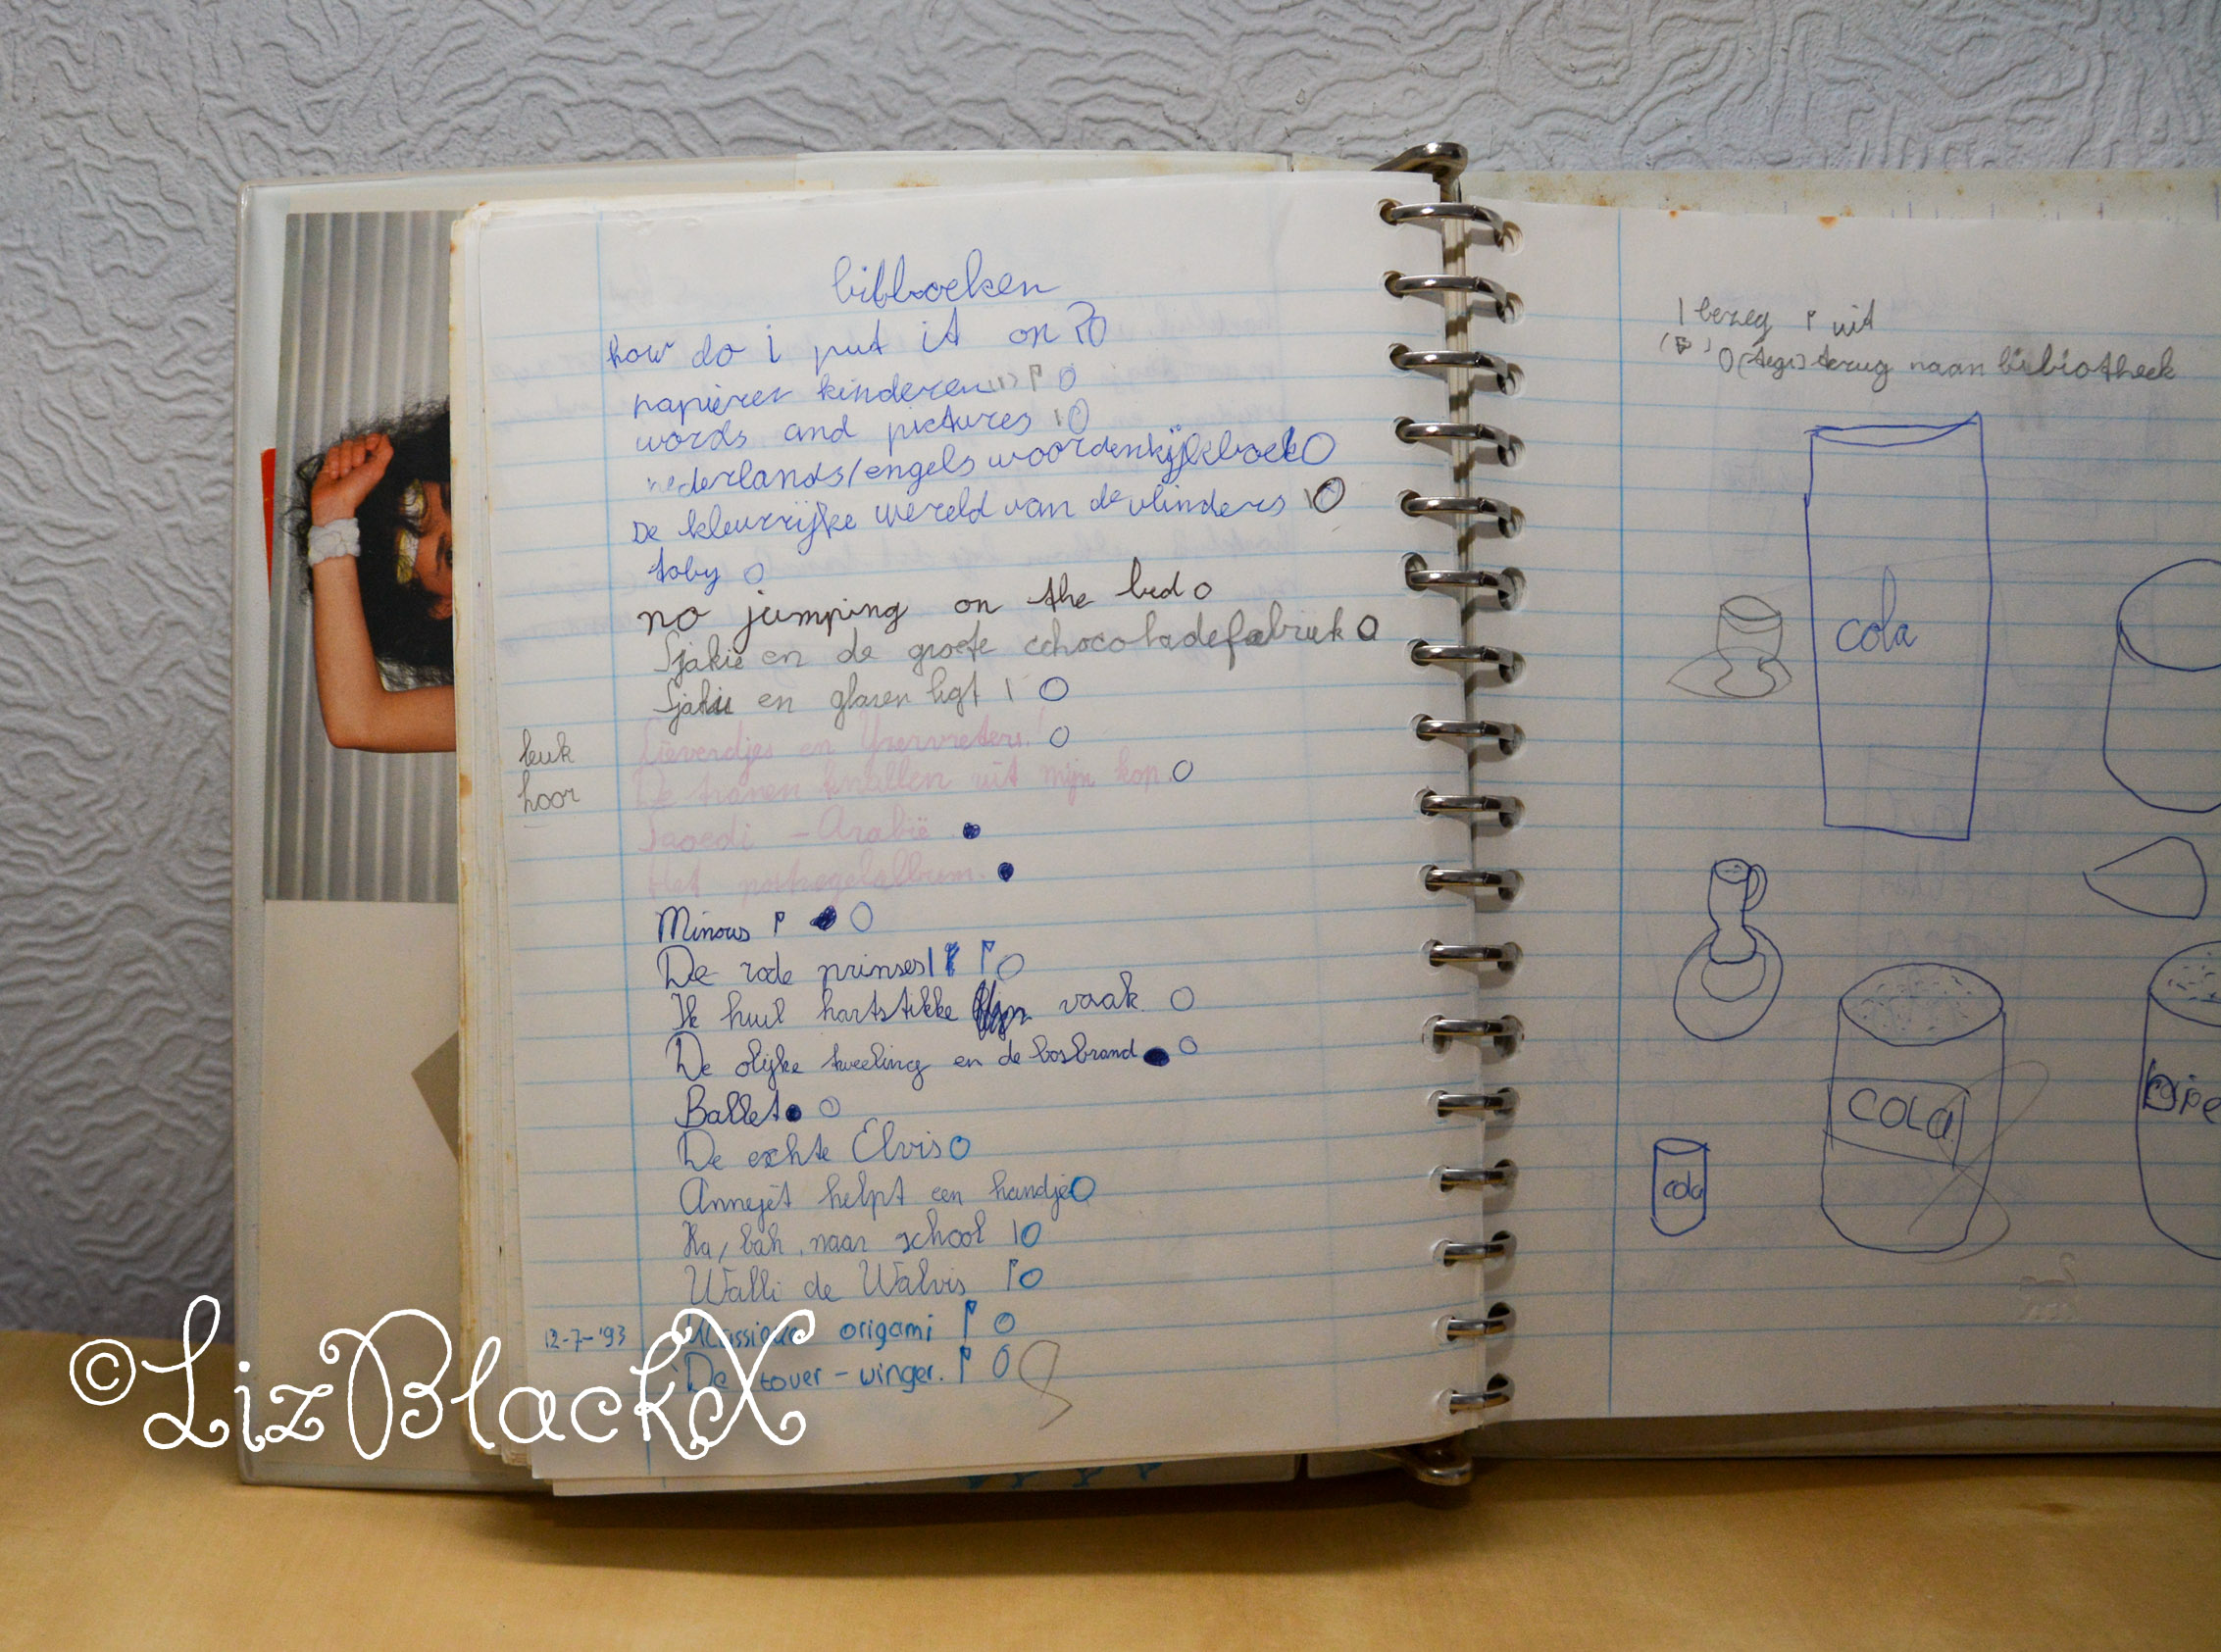 bibboeken
how do i put it on?
papieren kinderen
words and pictures
nederlands/engels woordenkijkboek
De kleurrijke wereld van de vlinders
toby
no jumping on the bed
Sjakie en de grote cchocoladefabriek
Sjakie en glazen ligt
leuk
hoor
Lieverdjes en Yzervreters!
De tranen knallen uit mijn kop.
Saoedi - Arabië
Het postzegelalbum.
Minous
De rode prinses
Ik huil hartstikke vaak
De olijke tweeling en de bosbrand
Ballet
De echte Elvis
Annejet helpt een handje
Ka, bah, naar school
Walli de Walvis
12-7-'93 origami
De tover-winger.
bezeg uit
terug naar bibiotheek
cola
COLA
cola
©LizBlackX